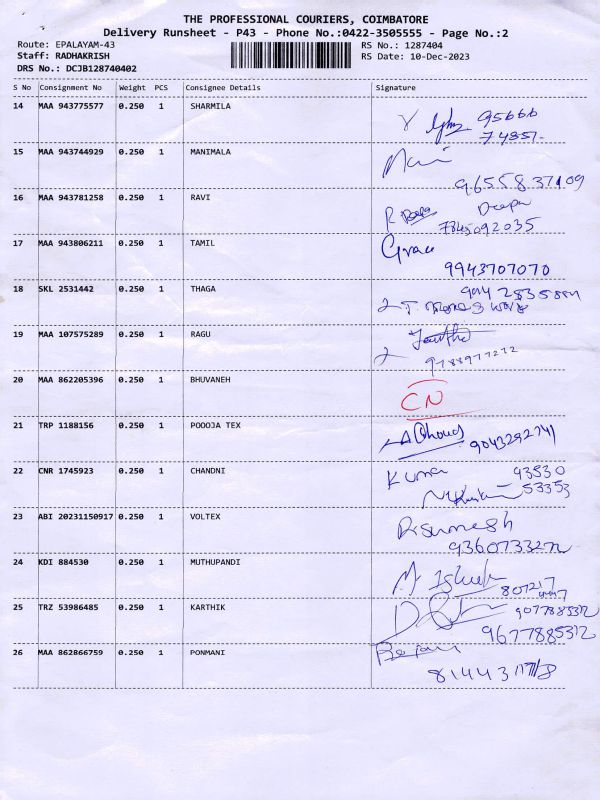 THE PROFESSIONAL COURIERS, COIMBATORE
Delivery Runsheet - P43 - Phone No.:0422-3505555 - Page No.:2
Route: EPALAYAM-43 RS No.: 1287404
Staff: RADHAKRISH RS Date: 10-Dec-2023
DRS No.: DCJB128740402
S No Consignment No Weight PCS Consignee Details Signature
14 MAA 943775577 0.250 1 SHARMILA 95666
74857
15 MAA 943744929 0.250 1 MANIMALA Mani
16 MAA 943781258 0.250 1 RAVI R Deepa Deepa
7845092035
17 MAA 943806211 0.250 1 TAMIL Grace
9943707070
18 SKL 2531442 0.250 1 THAGA
19 MAA 107575289 0.250 1 RAGU
9788977272
20 MAA 862205396 0.250 1 BHUVANEH CN
21 TRP 1188156 0.250 1 POOOJA TEX 9043292741
22 CNR 1745923 0.250 1 CHANDNI Kumar 93530
53353
23 ABI 20231150917 0.250 1 VOLTEX
24 KDI 884530 0.250 1 MUTHUPANDI
25 TRZ 53986485 0.250 1 KARTHIK 9077885312
9677885312
26 MAA 862866759 0.250 1 PONMANI